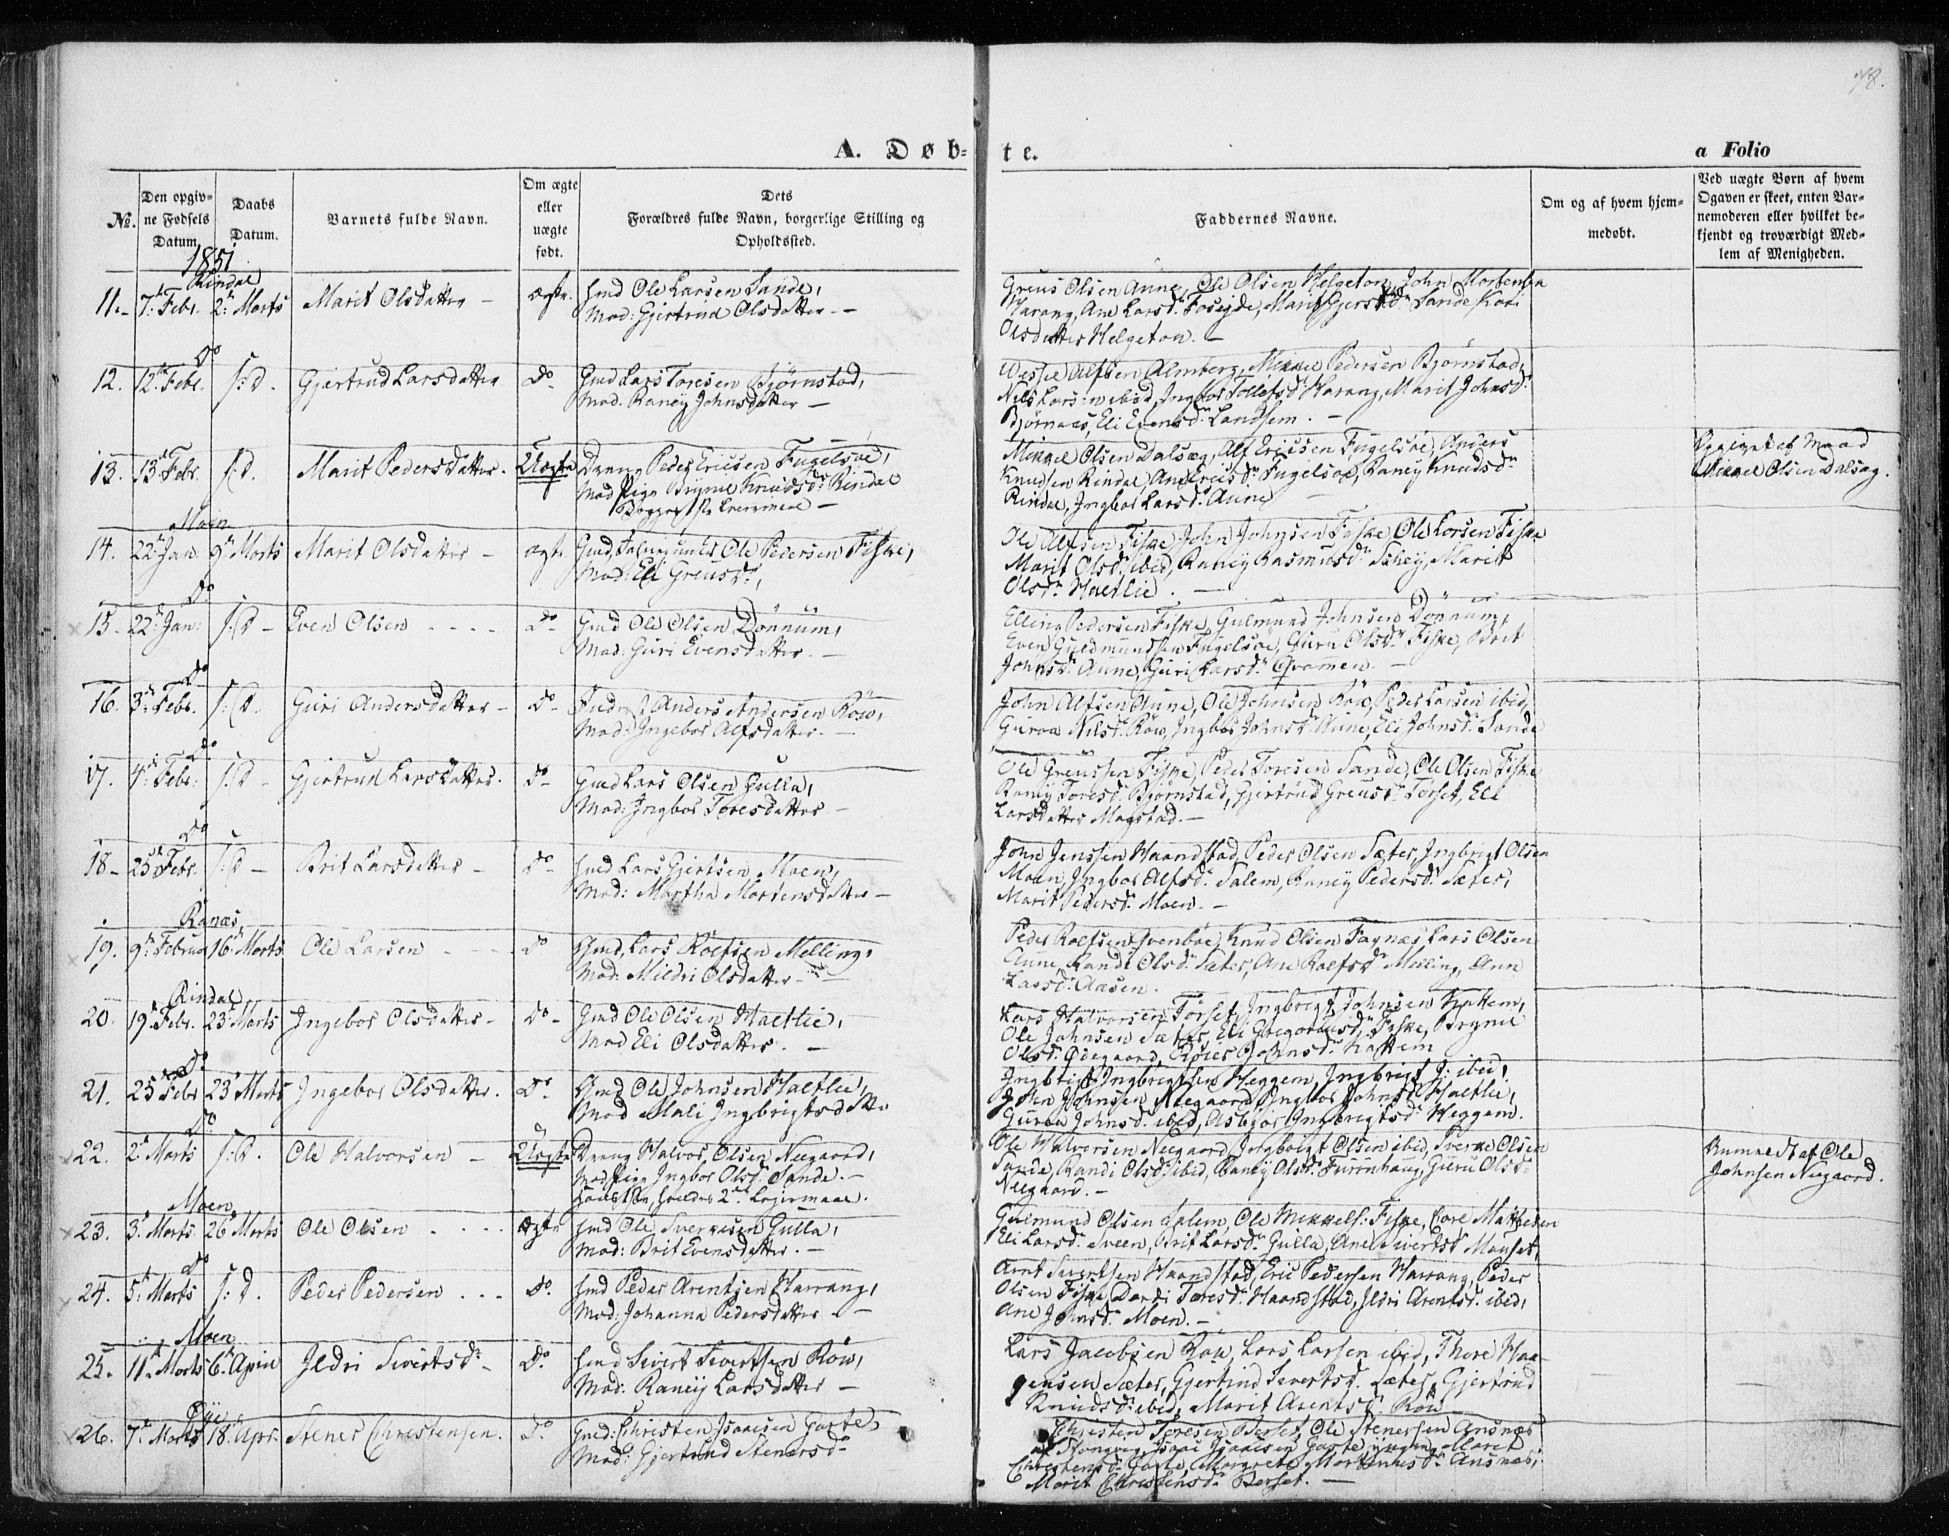 78.
A. Døb-
te.
a Folio
No.
Den opgiv-
ne Fødsels
Datum
Daabs
Datum.
Barnets fulde Navn.
Om ægte
eller
uægte
født.
Dets
Forældres fulde Navn, borgerlige Stilling og
Opholdssted.
Faddernes Navne.
Om og af hvem hjem-
medøbt.
Ved uægte Børn af hvem
Opgaven er skeet, enten Bar-
nemoderen eller hvilket be-
kjendt og troværdigt Med-
lem af Menigheden.
1851
Rindal
11. 7. Febr. 2. Marts Marit Olsdatter - ægte. Gmd Ole Larsen Sande,
Mod: Gjertrud Olsdatter -
Greus Olsen Aune, Ole Olsen Helgeton, John Mortensen
Harang, Ane Larsd. Foseide, Marit Sande Kari
Olsdatter Helgeton. -
Do
12. 12. Febr. s: D. Gjertrud Larsdatter Do Gmd Lars Toresen Bjørnstad,
Mod. Raney Johnsdatter -
Alfsen Almberg, Mikkel Pedersen Bjørnstad,
Nils Larsen ibid, Ingbor Tollefsd Harang, Marit Johnsd
Bjørnaas, Eli Evensd. Landsem. -
13. 13. Febr. s: D. Marit Pedersdatter. Uægte Dreng Peder Ericsen Fugelsøe,
Mod Pige Bryne Knudsd. Rindal
Begges 1ste Leiermaal -
Mikkel Olsen Dalsæg, Alf Ericsen Fugelsøe, Anders
Knudsen Rindal, Ane Ericsd. Fugelsøe, Raney Knudsd.
Rindal, Ingbor Larsd. Aune -
Opgivet af Mord
Mikkel Olsen Dalsæg.
Moen
14. 22. Jan. 9. Marts Marit Olsdatter - ægte Gmd, Ole Pedersen Fiske,
Mod: Eli Greusd.,
Ole Alfsen Fiske, John Johnsen Fiske, Ole Larsen Fiske
Marit Olsd. ibid, Raney Rasmusd. Skhey, Marit
Olsd. Haltlie. -
Do
15. 22. Jan. s: D - Even Olsen - - - - Do- Gmd Ole Olsen Dønnum,
Mod. Guri Evensdatter. -
Elling Pedersen Fiske, Gulmund Johnsen Dønnum,
Even Gudmundsen Fugelsøe, Guru Olsd. Fiske, Brit
Johnsd. Aune, Guri Larsd. Qvammen. -
Do
16. 3. Febr. s: D. Guri Andersdatter - Do Anders Andersen Røw,
Mod: Ingebor Alfsdatter. -
John Alfsen Aune, Ole Johnsen Røw, Peder Larsen ibid,
Guroe Nilsd. Røw, Ingbor Johnsd. Aune, Eli Johnsd. Sande
Do
17. 4. Febr. s: D - Gjertrud Larsdatter. Do Gmd Lars Olsen Gulla,
Mod: Ingbor Toresdatter -
Ole Greussen Fiske, Peder Toresen Sande, Ole Olsen Fiske
Raney Toresd. Bjørnstad, Gjertrud Greusd. Torset, Eli
Larsdatter Magstad. -
Do
18- 25. Febr. s: D - Brit Larsdatter - Do- Gmd Lars Gjertsen Moen,
Mod: Martha Mortensdatter -
John Jenssen Haandstad, Peder Olsen Sæter, Ingbrigt Olsen
Moen, Ingbor Alfsd. Salem, Raney Pedersd. Sæter,
Marit Pedersd. Moen. -
Ranæs
19. 9. Februar 16. Marts Ole Larsen - Do Gmd, Lars Roefsen Melling,
Mod: Mildri Olsdatter -
Peder Roelfsen Svenbøe, Knud Olsen Farnæs, Lars Olsen
Aune, Randi Olsd. Sæter, Ane Roelfsd. Melling, Ane
Larsd. Aasen.
Rindal
20. 19. Febr. 23. Marts Ingebor Olsdatter - Do- Gmd Ole Olsen Haltlie,
Mod Eli Olsdatter. -
Lars Halvorsen Torset, Ingbrigt Johnsen Kattem,
Ole Johnsen Sæter, Eli Gregoriusd. Fiske, Bryne
Olsd. Ødegaard, Johnsd. Kattem
Do
21. 25 Febr 23. Marts Ingebor Olsdatter. Do. Gmd Ole Johnsen Haltlie,
Mod Mali Ingbrigtsdatter
Ingbrigt Ingbrigtsen Heggem, Ingbrigt J: ibid,
John Johnsen Neegaard, Ingbor Johnsd. Haltlie,
Guroe Johnsd. ibid, Asbjør Ingbrigtsd. Heggem.
Do
22. 2. Marts s: D. Ole Halvorsen - Uægte Dreng Halvor Olsen Neegaard,
Mod Pige Ingbor Olsd. Sande. -
hans 1ste, hendes 2. Leiermaal.
Ole Halvorsen Neegaard, Ingbrigt Olsen ibid, Sverke Olsen
Sande, Randi Olsd. ibid, Raney Olsd. Furuhaug, Guru Olsd.
Neegaard. -
Anmeldt af Ole
Johnsen Neegaard.
Moen
23. 3. Marts. 26 Marts Ole Olsen - - - - ægte Gmd Ole Sverkesen Gulla,
Mod: Brit Evensdatter. -
Gulmund Olsen Salem, Ole Mikkels: Fiske, Tore Mathesen
Eli Larsd. Sveen, Brit Larsd. Gulla, Ane Sivertsd. Mauset,
Do
24. 5. Marts s: D. Peder Pedersen . . . Do. Gmd Peder Arentsen Harrang,
Mod: Johanna Pedersdatter -
Arnt Sivertsen Haandstad, Eric Pedersen Harrang, Peder
Olsen Fiske, Dordi Toresd. Haandstad, Ildri Arentsd. ibid,
Ane Johnsd. Moen. -
Moen
25. 11. Marts 6. April Ildri Sivertsd. - Do. Gmd Sivert Sivertsen Røw,
Mod: Raney Larsdatter -
Lars Jacobsen Røw, Lars Larsen ibid, Thore Haa-
gensen Sæter, Gjertrud Sivertsd. Sæter, Gjertrud
Knudsd. ibid, Marit Arentsd. Røw
Øye
26. 7. Marts 18. Apr. Stener Christensen. Do Gmd: Christen Isaacsen Garte,
Mod: Gjertrud Stenersd.
Christen Toresen Berset, Ole Stenersen Ansnæs
Stangvig, Isaac Isaacsen Garte, Maret
Christensd. Garte, Margrete Mortensd. Ansnæs,
Marit Christensd. Berset. -